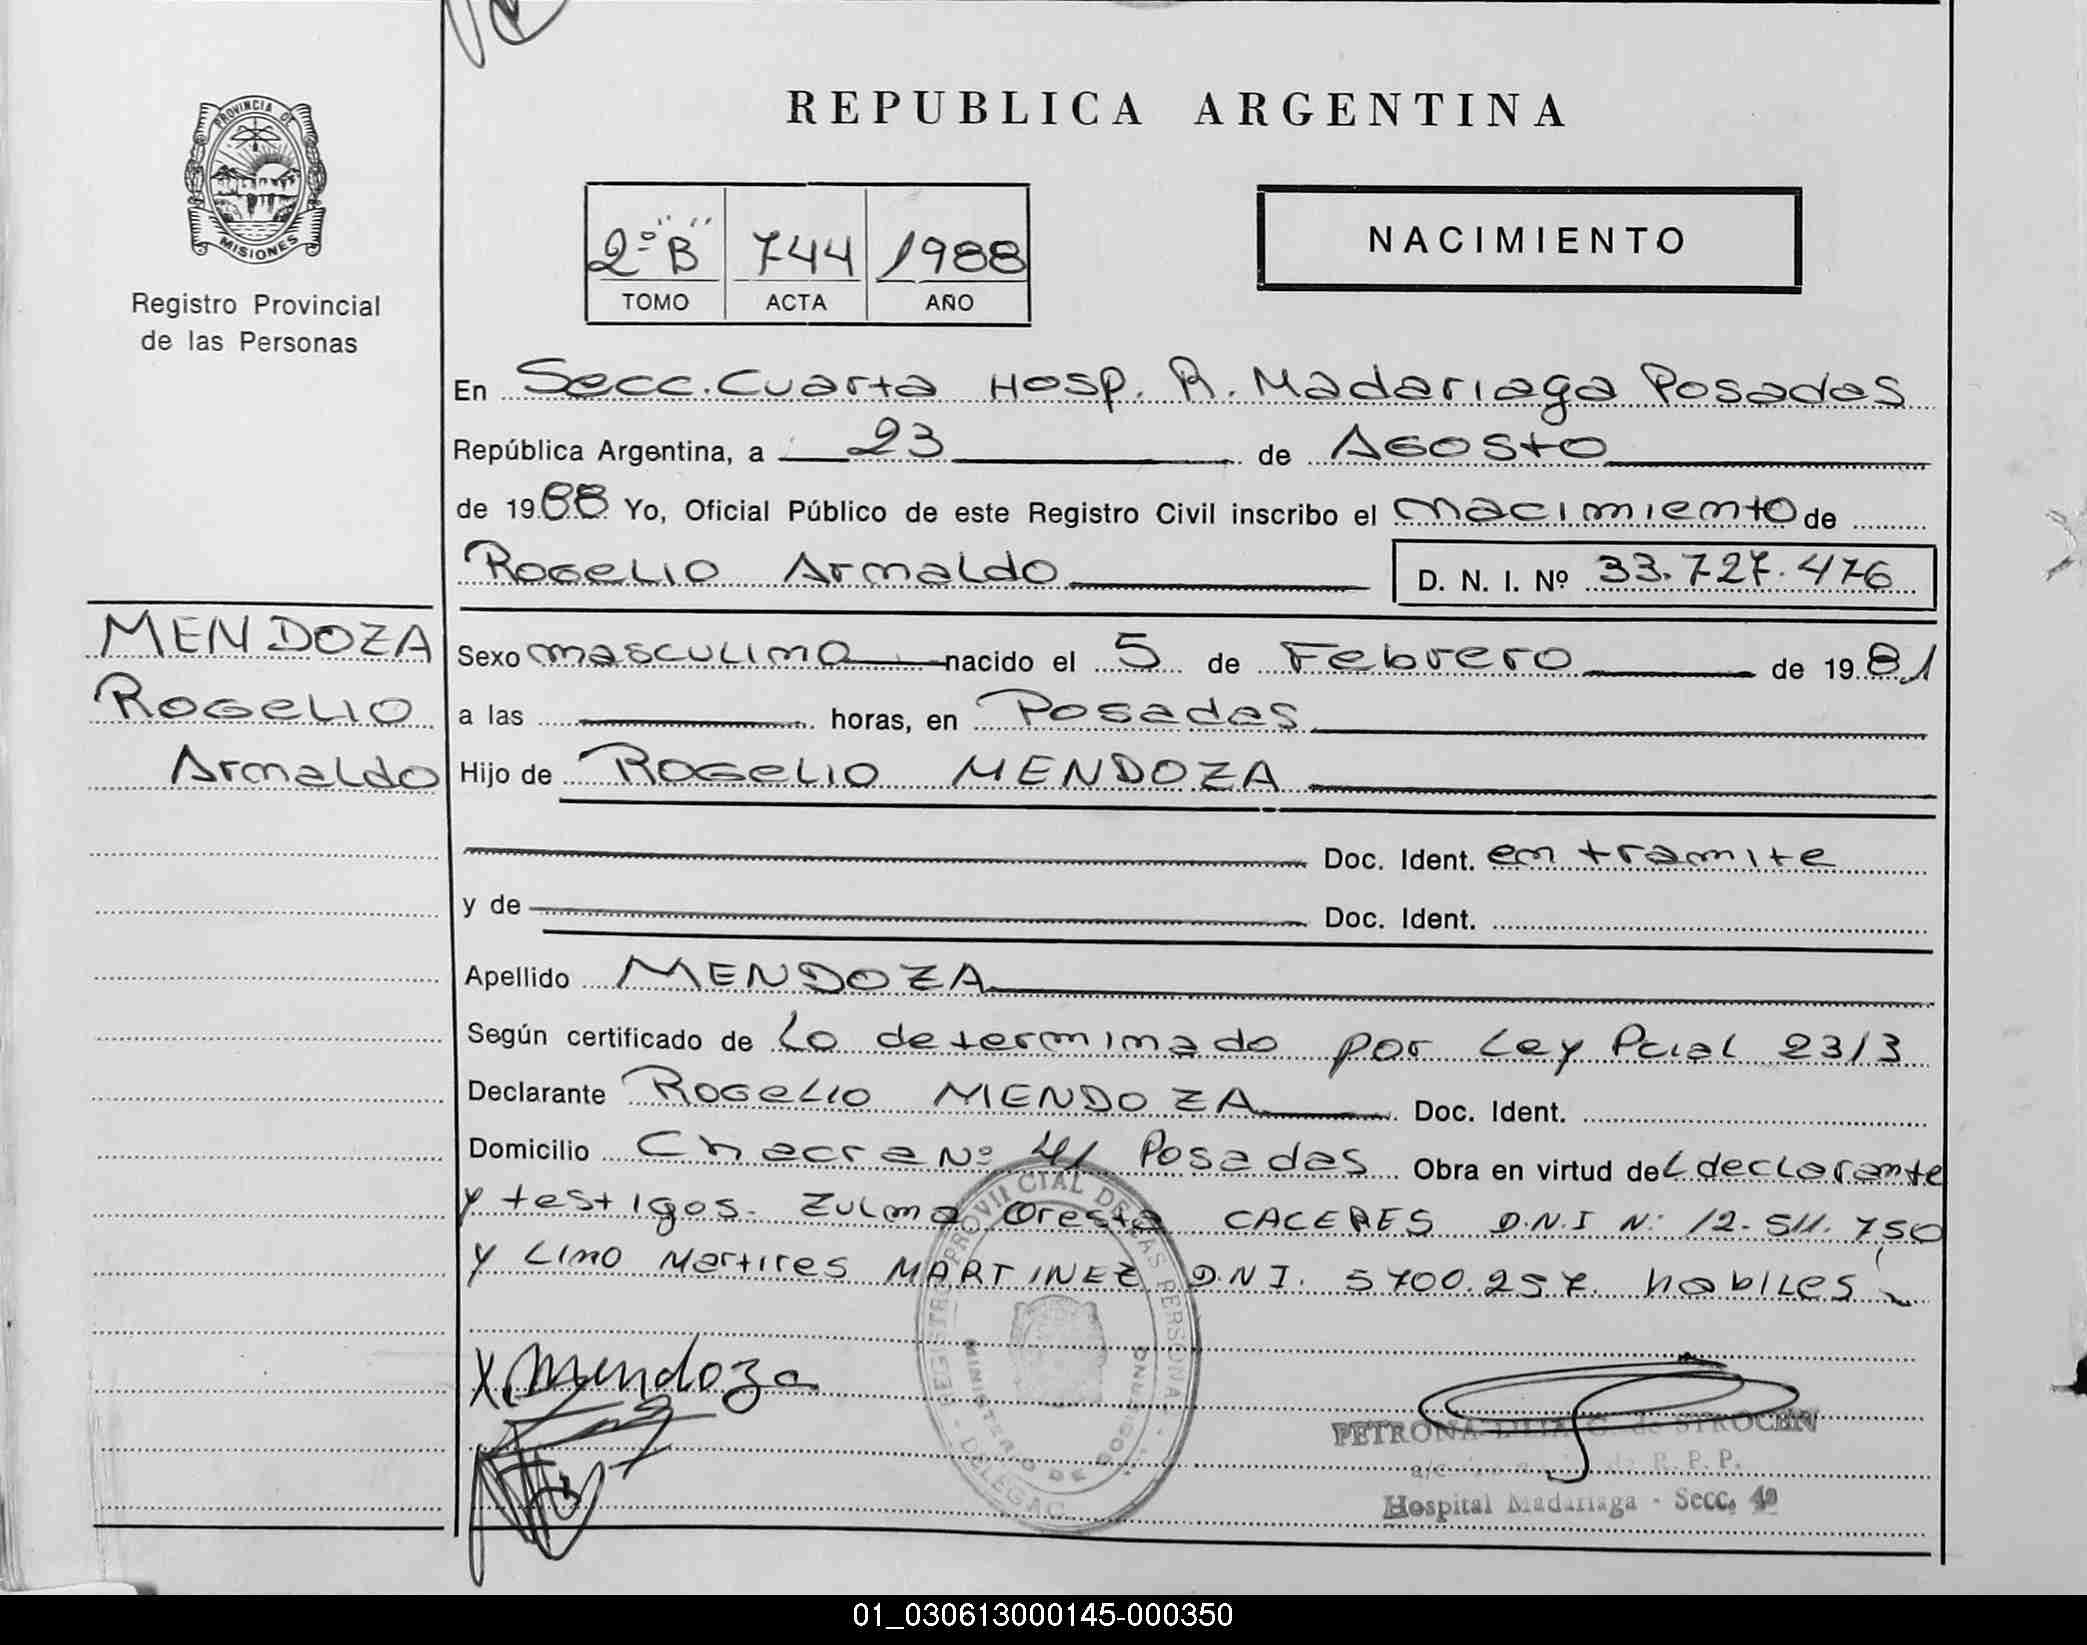 REPUBLICA ARGENTINA
PROVINCIA DE
MISIONES
Registro Provincial
de las Personas
2º "B" 744 1988
TOMO ACTA AÑO
NACIMIENTO
En Secc. Cuarta Hosp. R. Madariaga Posadas
República Argentina, a 23 de Agosto
de 1988 Yo, Oficial Público de este Registro Civil inscribo el nacimiento de
Rogelio Arnaldo D. N. I. Nº 33.727.476
MENDOZA
Rogelio
Arnaldo
Sexo masculino nacido el 5 de Febrero de 1981
a las horas, en Posadas
Hijo de Rogelio MENDOZA
Doc. Ident. en tramite
y de Doc. Ident.
Apellido MENDOZA
Según certificado de Lo determinado por Ley Pcial 2313
Declarante Rogelio MENDOZA Doc. Ident.
Domicilio Chacra Nº 41 Posadas Obra en virtud del declarante
y testigos. Zulma Oresta CACERES D.N.I Nº 12.511.750
y Lino Martires MARTINEZ D.N.I. 5700.257. habiles
X Mendoza
REGISTRO PROVINCIAL DE LAS PERSONAS
MINISTERIO DE GOBIERNO
DELEGAC
PETRONA C. de STROCEN
R. P. P.
Hospital Madariaga - Secc. 4º
01_030613000145-000350